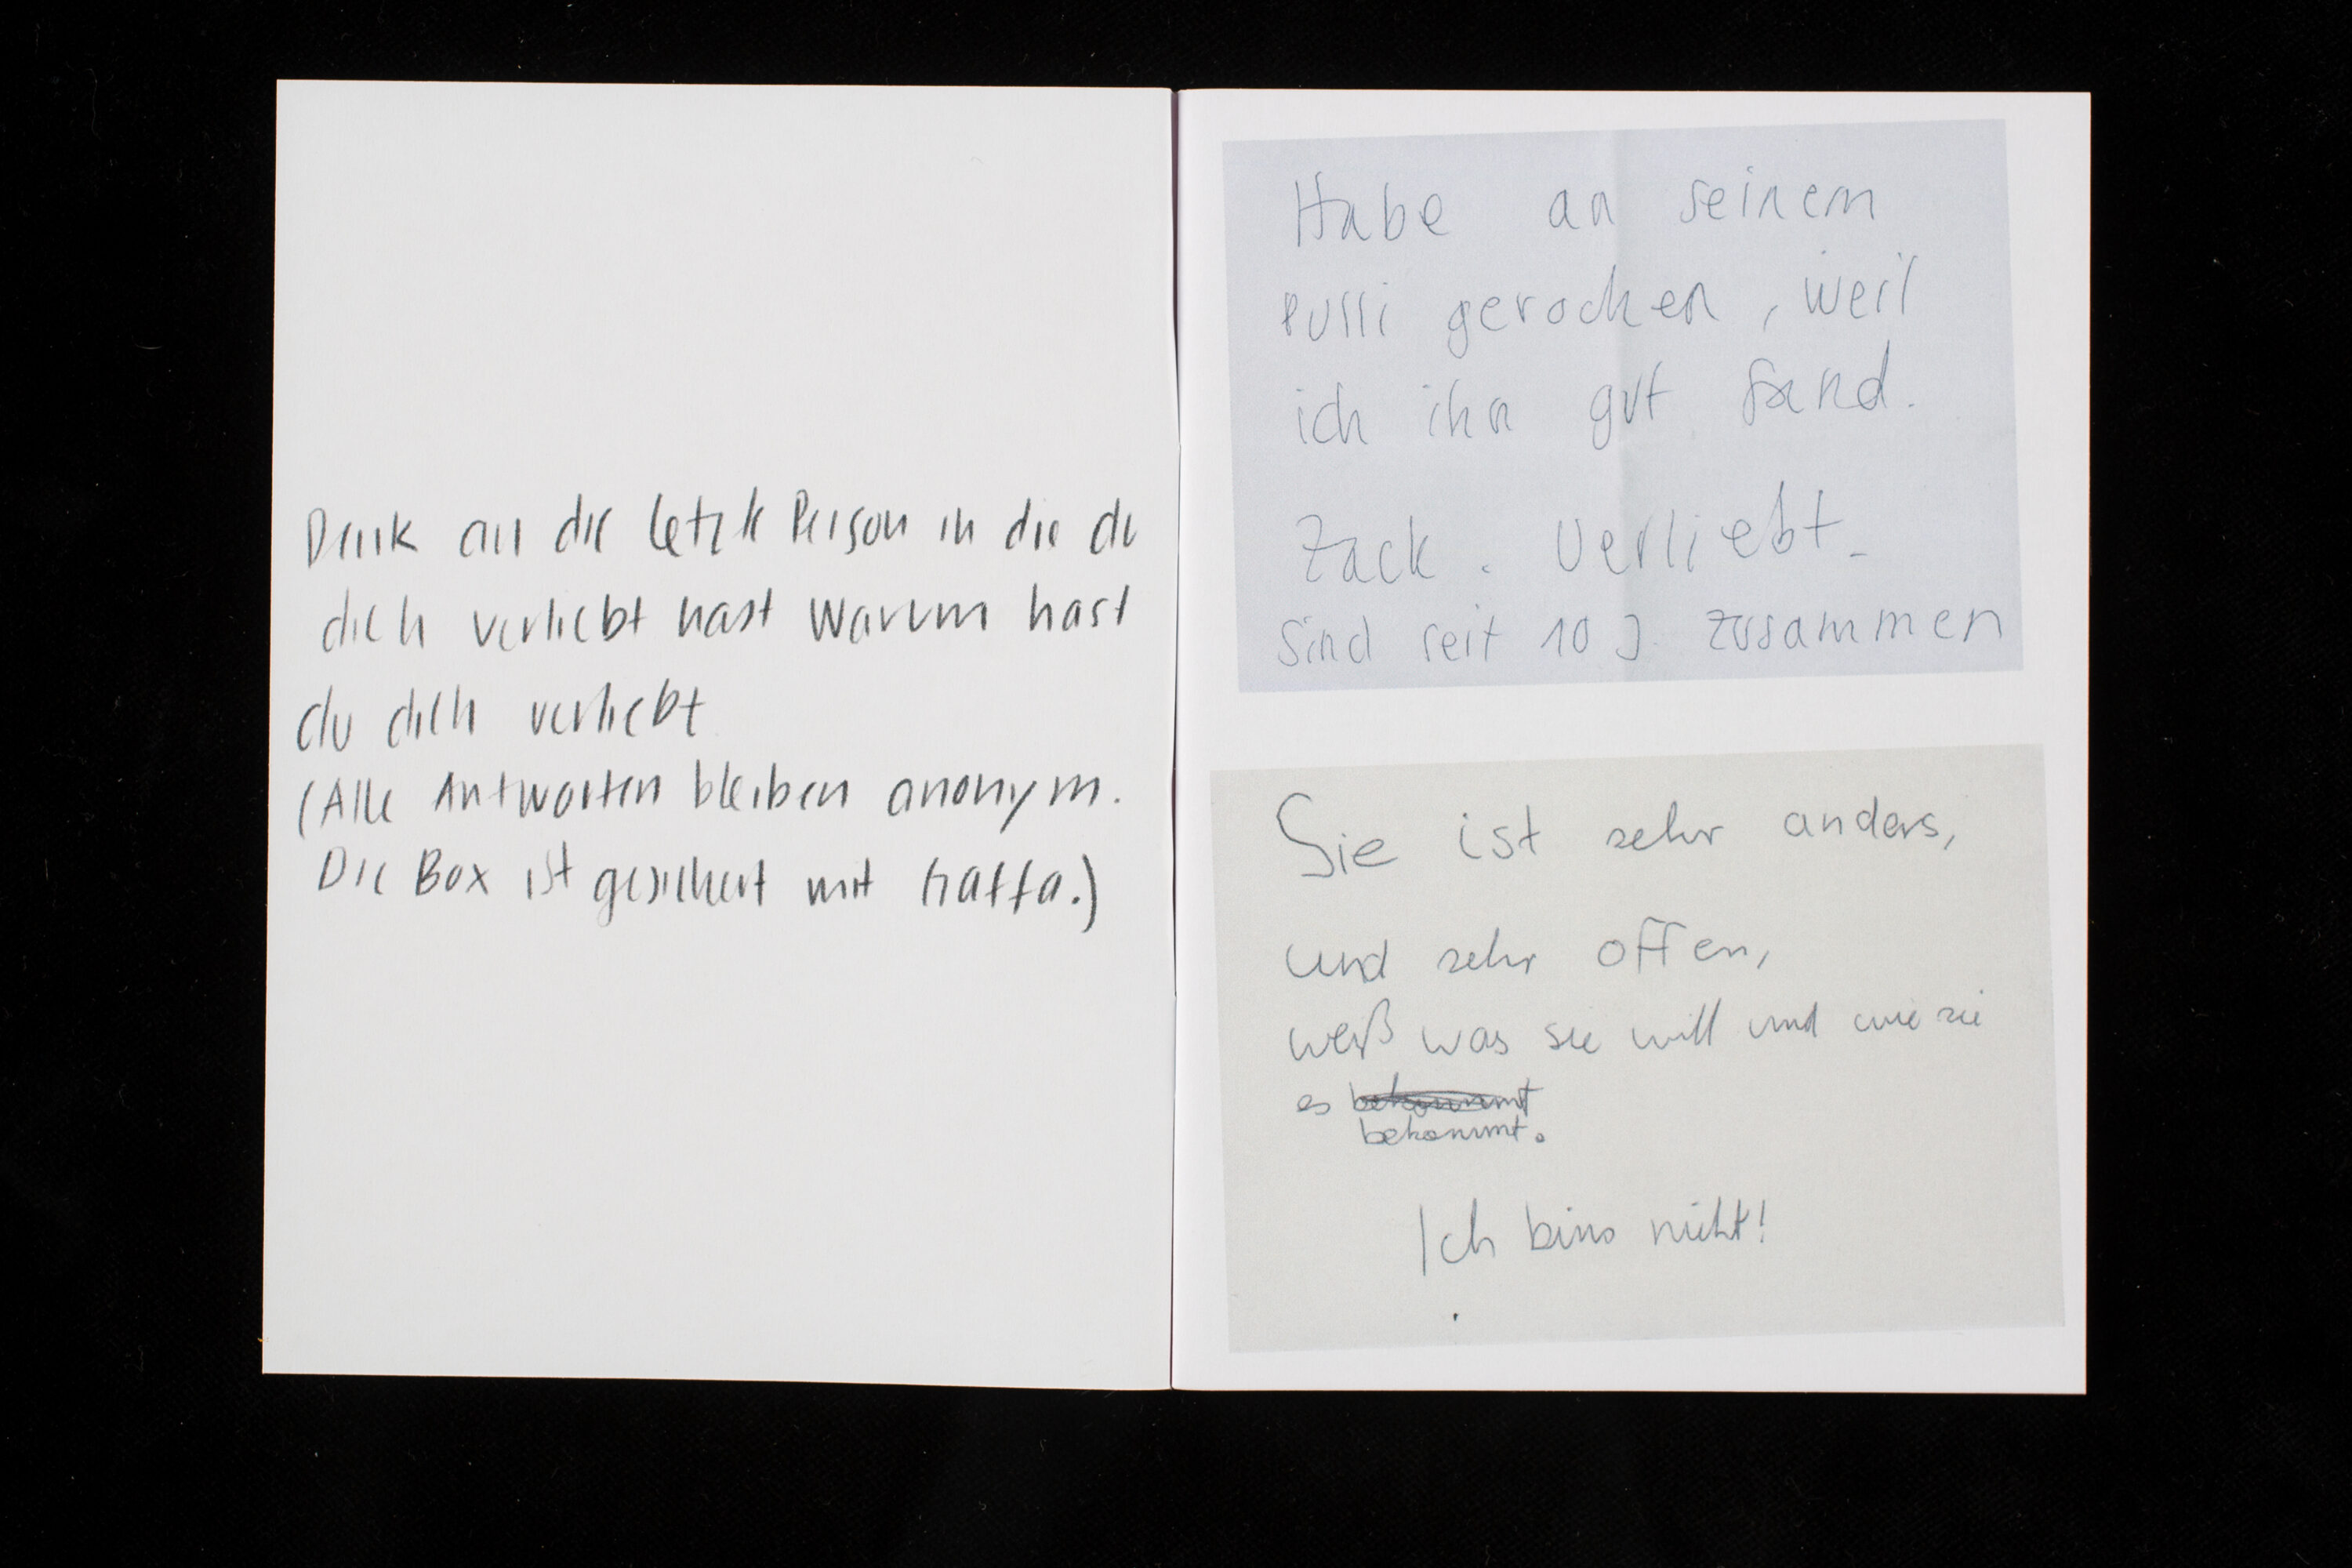 Denk an die letzte Person in die du
dich verliebt hast warum hast
du dich verliebt
(Alle Antworten bleiben anonym.
Die Box ist gesichert mit Gaffa.)
Habe an seinem
Pulli gerochen, weil
ich ihn gut fand.
Zack. Verliebt.
Sind seit 10 J. zusammen
Sie ist sehr anders,
und sehr offen,
weiß was sie will und wie sie
es bekommt
bekommt.
Ich bins nicht!